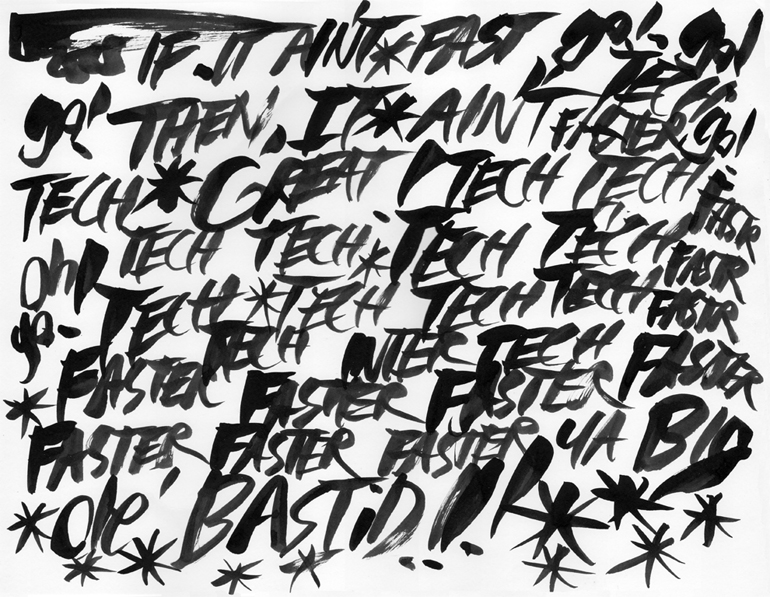 IF IT AIN'T * FAST go! go!
TECH
go! THEN, IT * AIN'T FASTER go!
TECH * GREAT TECH TECH
FASTR
TECH TECH * TECH TECH FASTR
Oh! TECH * TECH TECH TECH FASTR
ya TECH INTER TECH
FASTER FASTER FASTER FASTER
FASTER, FASTER FASTER YA BIG
* Ole' BASTiD!! * * *